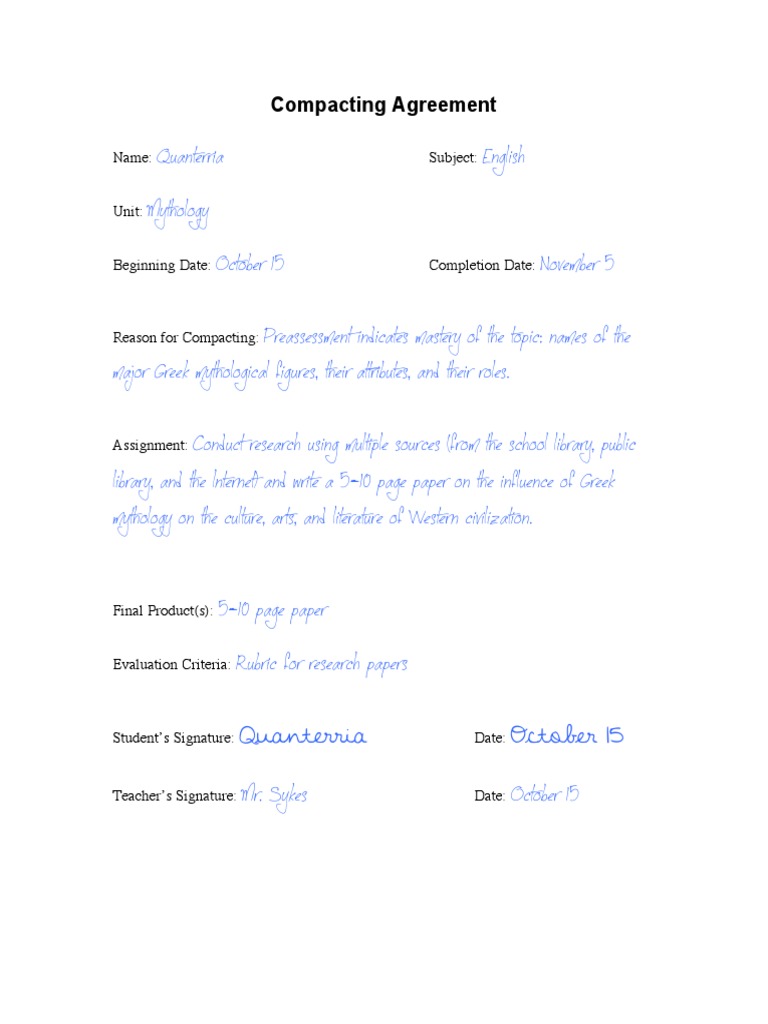 Compacting Agreement
Name: Quanterria Subject: English
Unit: Mythology
Beginning Date: October 15 Completion Date: November 5
Reason for Compacting: Preassessment indicates mastery of the topic: names of the
major Greek mythological figures, their attributes, and their roles.
Assignment: Conduct research using multiple sources (from the school library, public
library, and the Internet) and write a 5-10 page paper on the influence of Greek
mythology on the culture, arts, and literature of Western civilization.
Final Product(s): 5-10 page paper
Evaluation Criteria: Rubric for research papers
Student's Signature: Quanterria Date: October 15
Teacher's Signature: Mr. Sykes Date: October 15